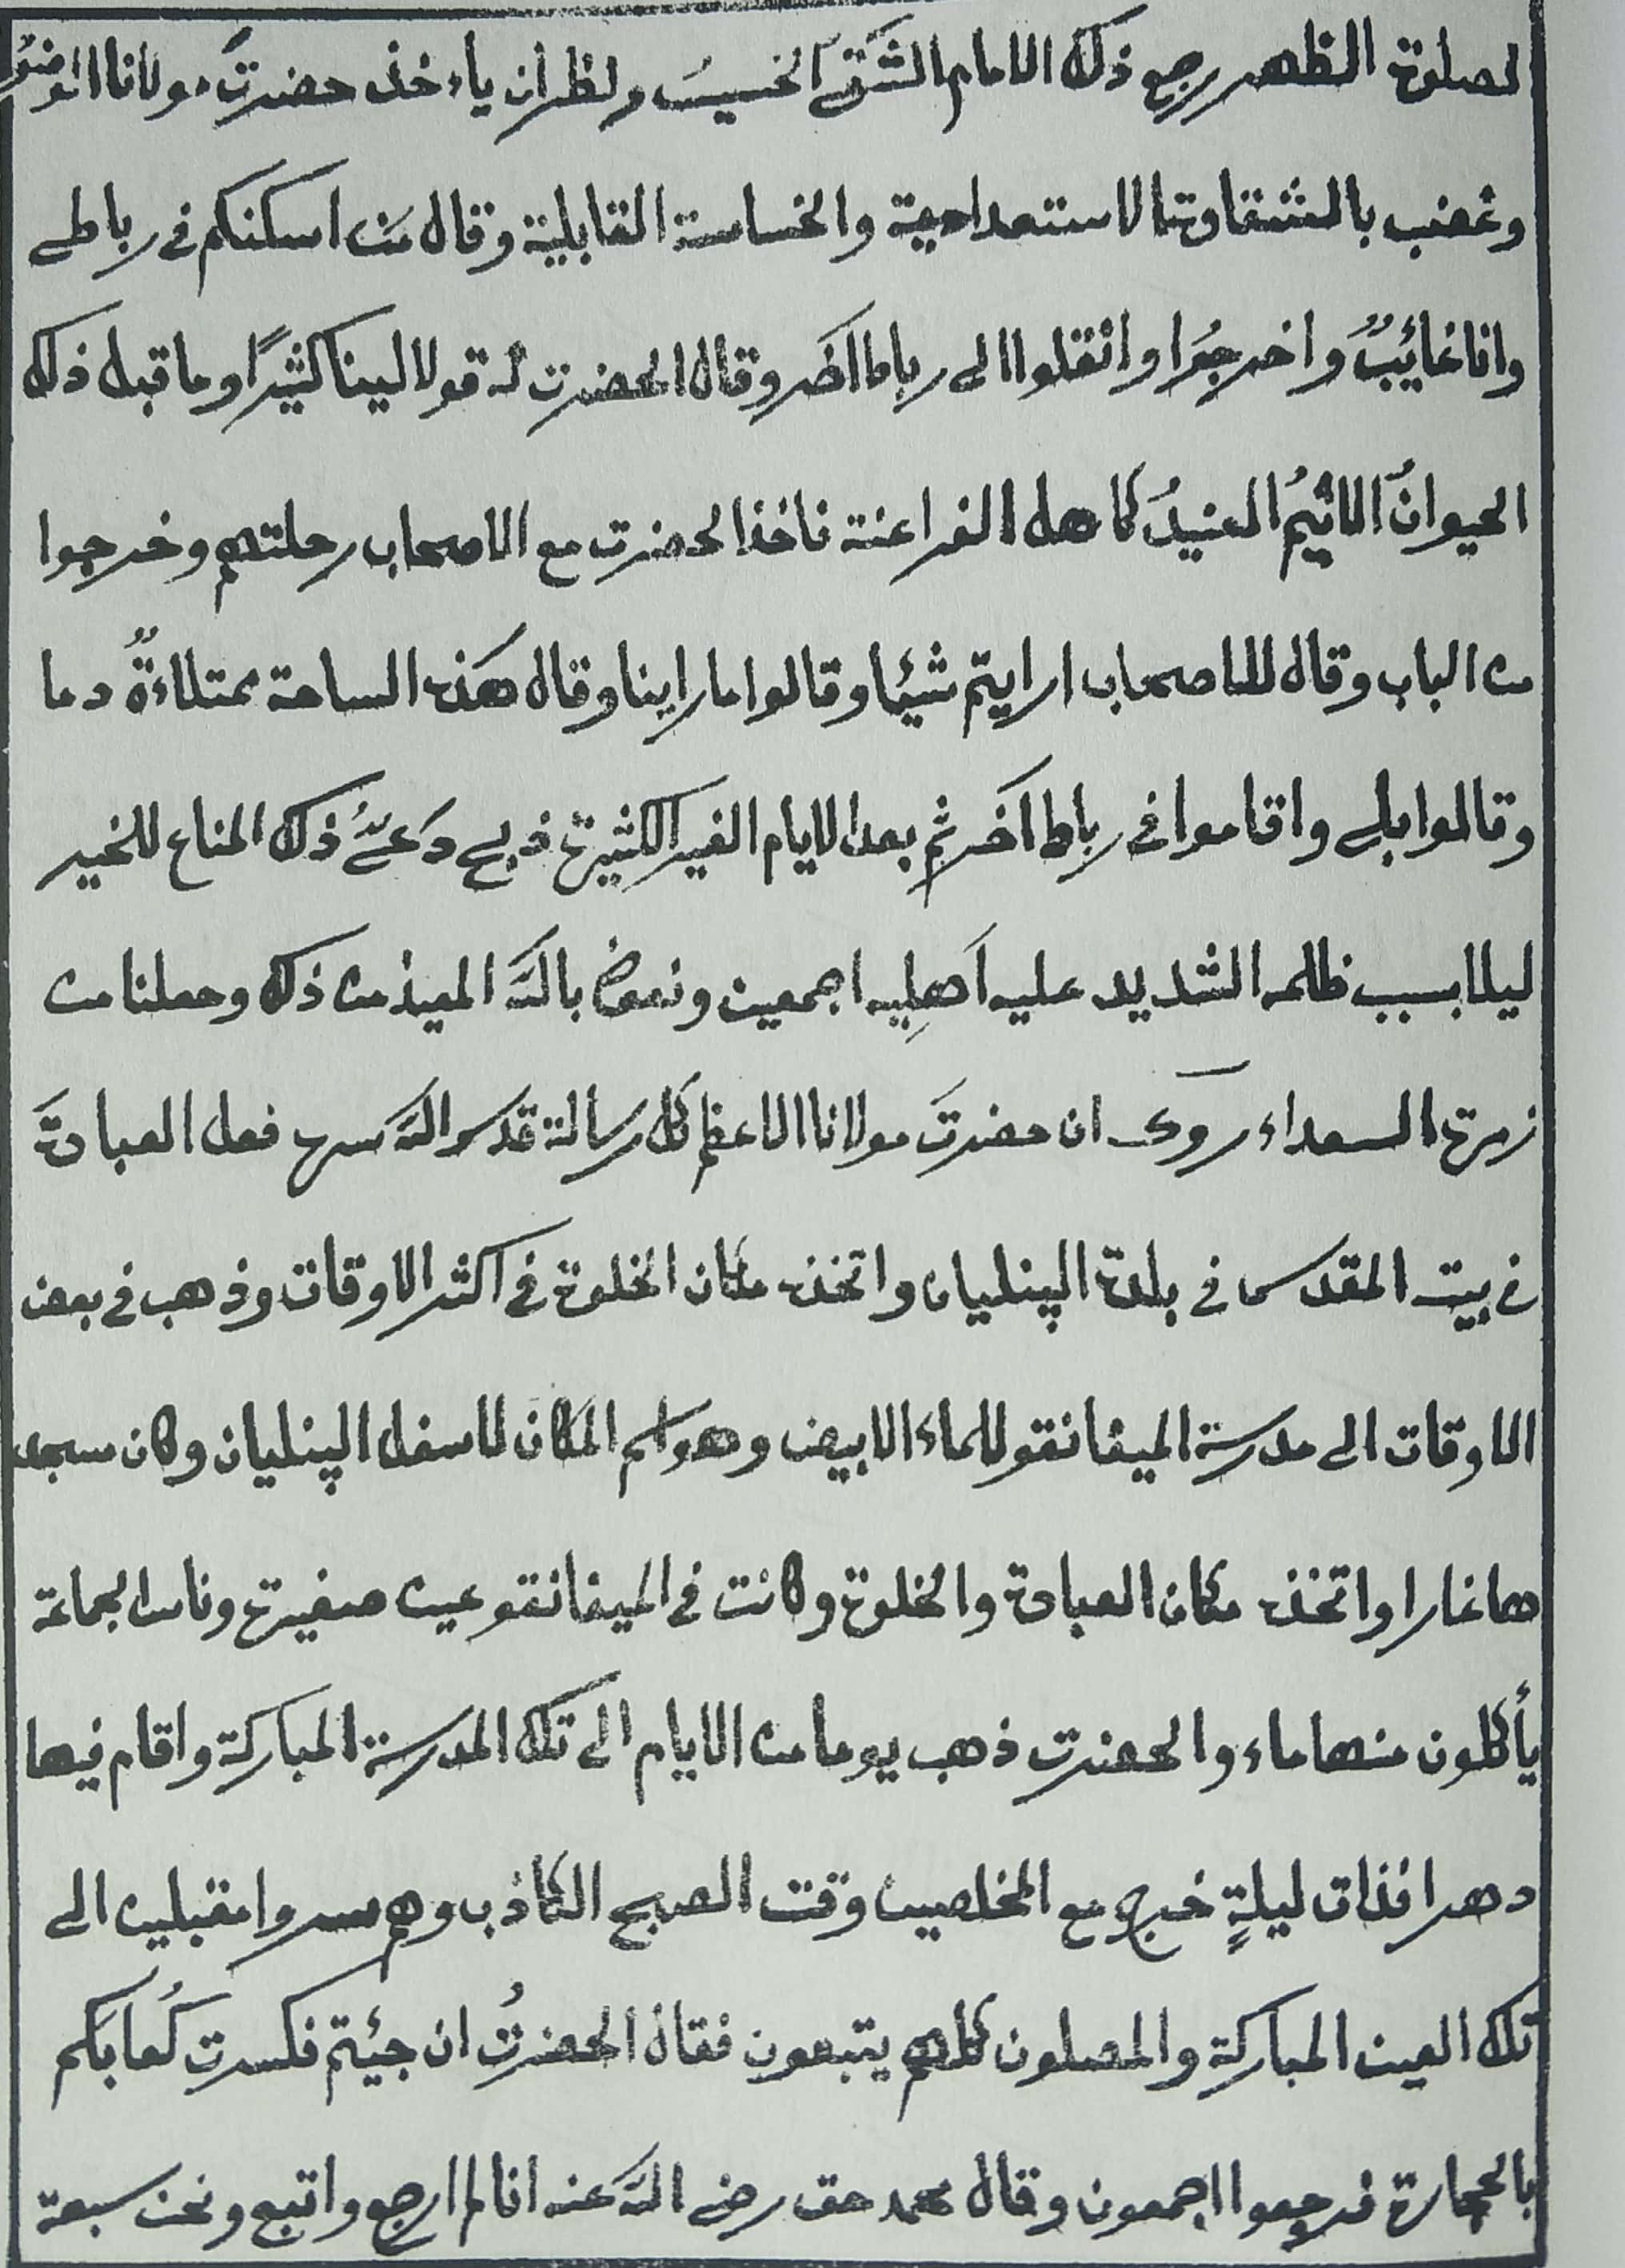 لصلوة الظهر رجع ذلك الامام الشَّقِيّ الخسيسُ ولظ ان ياءخذ حضرتَ مولانا
وغضب بالشقاوة الاستعدادية والخساسة القابلية وقال مَن اسكنكم فى رباطى
وانا غايُبٌ واخرجُوا وانْقلوا الى رباط اٰخَر وقال الحضرت له قولا لينا كثيرًا وما قبل ذلك
الحيوانُ الاثيمُ العنيدُ كاهل الفراعنة فاخذ الحضرت مع الاصحاب رحلتهم وخرجوا
من الباب وقال للاصحاب ارايتم شيئا وقالوا ما راينا وقال هَذه الساحة ممتلاءةٌ دما
وقالوا بلى واقاموا فى رباط اٰخَر ثم بعد الايام الغير الكثيرة ذبح دَعىُّ ذلك المناع للخير
ليلا بسبب ظلمه الشديد عليه اَهلِيه اجمعين ونعوذ بالله المعيذ من ذلك وجعلنا من
زمرة السعداء روى ان حضرتَ مولانا الاعظم كل رسالة قدس الله سره فعل العبادةَ
فى بيت المقدس فى بلدة الپنليان واتخذه مكان الخلوة فى اكثر الاوقات وذهب فى بعض
الاوقات الى مدرسة الميفانقو للماء الابيض وهو اسم المكان لاسفل الپنليان وكان مسجد
ها غارا واتخذه مكان العبادة والخلوة وكانت فى الميفانقو عين صغيرة وناس الجماعة
يأكلون منها ماء والحضرت ذهب يوما من الايام الى تلك المدرسة المباركة واقام فيها
دهرا فذات ليلةٍ خرج مع المخلصين وقت الصبح الكاذب وهم سروا مقبلين الى
تلك العين المباركة والمصلون كلهم يتبعون فقال الحضرتُ ان جيئتم فكسرت كُعابَكم
بالحجارة فرجعوا اجمعون وقال محمد حق رضى الله عنه انا لم ارجع واتبع ونحن سبعة